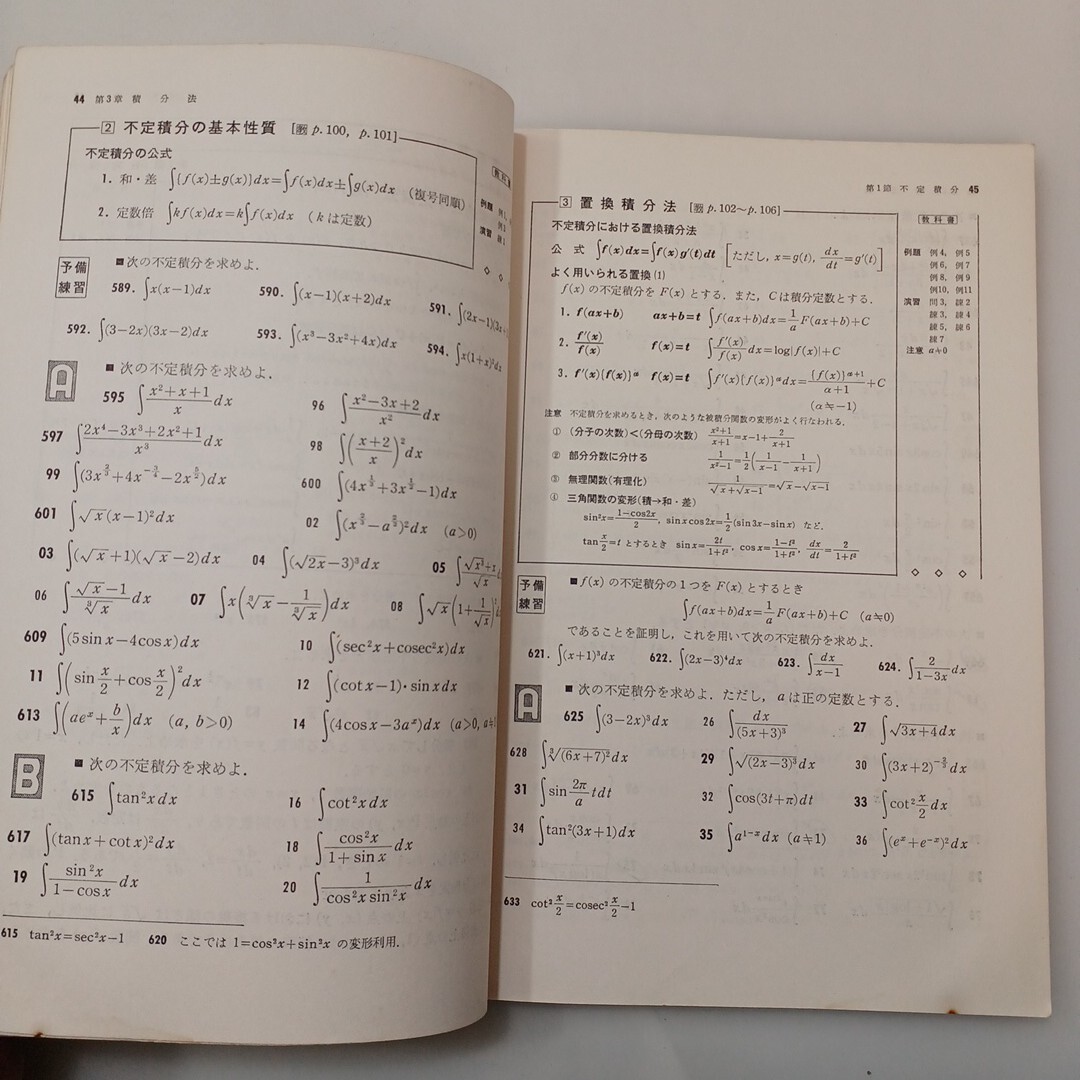 44 第3章 積 分 法
2 不定積分の基本性質 [教 p.100, p.101]
不定積分の公式
1. 和・差 ∫{f(x)±g(x)}dx=∫f(x)dx±∫g(x)dx (複号同順)
2. 定数倍 ∫kf(x)dx=k∫f(x)dx (kは定数)
例題
演習
予備練習
■次の不定積分を求めよ.
589. ∫x(x−1)dx 590. ∫(x−1)(x+2)dx 591. ∫(2x−1)(3x+
592. ∫(3−2x)(3x−2)dx 593. ∫(x³−3x²+4x)dx 594. ∫x(1+x)³dx
A ■次の不定積分を求めよ.
595 ∫(x²+x+1)/x dx 96 ∫(x²−3x+2)/x² dx
597 ∫(2x⁴−3x³+2x²+1)/x³ dx 98 ∫((x+2)/x)²dx
99 ∫(3x^{2/3}+4x^{−3/4}−2x^{5/2})dx 600 ∫(4x^{1/3}+3x^{1/2}−1)dx
601 ∫√x(x−1)²dx 02 ∫(x^{2/3}−a^{2/3})²dx (a>0)
03 ∫(√x+1)(√x−2)dx 04 ∫(√2x−3)³dx 05 ∫(√x³+x
06 ∫(√x−1)/∛x dx 07 ∫x(∛x−1/∛x)dx 08 ∫√x(1+1/√x)
609 ∫(5sinx−4cosx)dx 10 ∫(sec²x+cosec²x)dx
11 ∫(sin x/2+cos x/2)²dx 12 ∫(cotx−1)・sinxdx
613 ∫(ae^x+b/x)dx (a, b>0) 14 ∫(4cosx−3a^x)dx (a>0, a≒
B ■次の不定積分を求めよ.
615 ∫tan²xdx 16 ∫cot²xdx
617 ∫(tanx+cotx)²dx 18 ∫cos²x/(1+sinx) dx
19 ∫sin²x/(1−cosx) dx 20 ∫1/(cos²x sin²x) dx
615 tan²x=sec²x−1 620 ここでは 1=cos²x+sin²x の変形利用.
第1節 不定積分 45
3 置換積分法 [教 p.102〜p.106]
不定積分における置換積分法
公 式 ∫f(x)dx=∫f(x)g′(t)dt [ただし, x=g(t), dx/dt=g′(t)]
よく用いられる置換(1)
f(x)の不定積分をF(x)とする. また, Cは積分定数とする.
1. f(ax+b) ax+b=t ∫f(ax+b)dx=1/a F(ax+b)+C
2. f′(x)/f(x) f(x)=t ∫f′(x)/f(x) dx=log|f(x)|+C
3. f′(x){f(x)}^α f(x)=t ∫f′(x){f(x)}^α dx={f(x)}^{α+1}/(α+1)+C
(α≒−1)
注意 不定積分を求めるとき, 次のような被積分関数の変形がよく行なわれる.
① (分子の次数)<(分母の次数) (x²+1)/(x+1)=x−1+2/(x+1)
② 部分分数に分ける 1/(x²−1)=1/2(1/(x−1)−1/(x+1))
③ 無理関数(有理化) 1/(√x+√x−1)=√x−√x−1
④ 三角関数の変形(積→和・差)
sin²x=(1−cos2x)/2, sinxcos2x=1/2(sin3x−sinx) など.
tan x/2=t とするとき sinx=2t/(1+t²), cosx=(1−t²)/(1+t²), dx/dt=2/(1+t²)
教科書
例題 例4, 例5
例6, 例7
例8, 例9
例10, 例11
演習 問3, 練2
練3, 練4
練5, 練6
練7
注意 a≒0
◇ ◇ ◇
予備練習
■f(x)の不定積分の1つをF(x)とするとき
∫f(ax+b)dx=1/a F(ax+b)+C (a≒0)
であることを証明し, これを用いて次の不定積分を求めよ.
621. ∫(x+1)³dx 622. ∫(2x−3)⁴dx 623. ∫dx/(x−1) 624. ∫2/(1−3x) dx
A ■次の不定積分を求めよ. ただし, aは正の定数とする.
625 ∫(3−2x)³dx 26 ∫dx/(5x+3)³ 27 ∫√3x+4dx
628 ∫∛(6x+7)²dx 29 ∫√(2x−3)³dx 30 ∫(3x+2)^{−2/3}dx
31 ∫sin 2π/a tdt 32 ∫cos(3t+π)dt 33 ∫cot² x/2 dx
34 ∫tan²(3x+1)dx 35 ∫a^{1−x}dx (a≒1) 36 ∫(e^x+e^{−x})²dx
633 cot² x/2=cosec² x/2−1